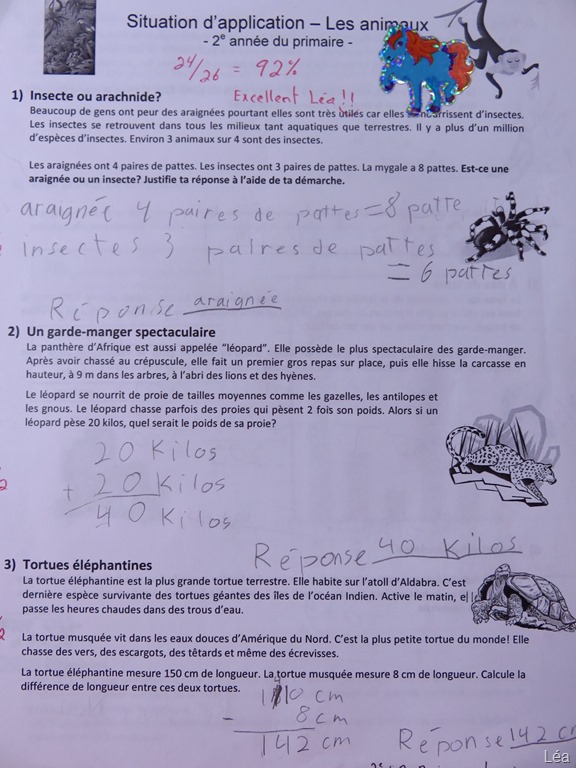 Situation d'application – Les animaux
- 2e année du primaire -
24/26 = 92%
Excellent Léa!!
1) Insecte ou arachnide?
Beaucoup de gens ont peur des araignées pourtant elles sont très utiles car elles se nourrissent d'insectes.
Les insectes se retrouvent dans tous les milieux tant aquatiques que terrestres. Il y a plus d'un million
d'espèces d'insectes. Environ 3 animaux sur 4 sont des insectes.
Les araignées ont 4 paires de pattes. Les insectes ont 3 paires de pattes. La mygale a 8 pattes. Est-ce une
araignée ou un insecte? Justifie ta réponse à l'aide de ta démarche.
araignée 4 paires de pattes = 8 patte
insectes 3 paires de pattes
= 6 pattes
Réponse araignée
2) Un garde-manger spectaculaire
La panthère d'Afrique est aussi appelée "léopard". Elle possède le plus spectaculaire des garde-manger.
Après avoir chassé au crépuscule, elle fait un premier gros repas sur place, puis elle hisse la carcasse en
hauteur, à 9 m dans les arbres, à l'abri des lions et des hyènes.
Le léopard se nourrit de proie de tailles moyennes comme les gazelles, les antilopes et
les gnous. Le léopard chasse parfois des proies qui pèsent 2 fois son poids. Alors si un
léopard pèse 20 kilos, quel serait le poids de sa proie?
20 Kilos
2
+ 20 Kilos
40 Kilos
Réponse 40 Kilos
3) Tortues éléphantines
La tortue éléphantine est la plus grande tortue terrestre. Elle habite sur l'atoll d'Aldabra. C'est
dernière espèce survivante des tortues géantes des îles de l'océan Indien. Active le matin, el
passe les heures chaudes dans des trous d'eau.
2
La tortue musquée vit dans les eaux douces d'Amérique du Nord. C'est la plus petite tortue du monde! Elle
chasse des vers, des escargots, des têtards et même des écrevisses.
La tortue éléphantine mesure 150 cm de longueur. La tortue musquée mesure 8 cm de longueur. Calcule la
différence de longueur entre ces deux tortues.
4
10 cm
- 8 cm
142 cm
Réponse 142 cm
Léa